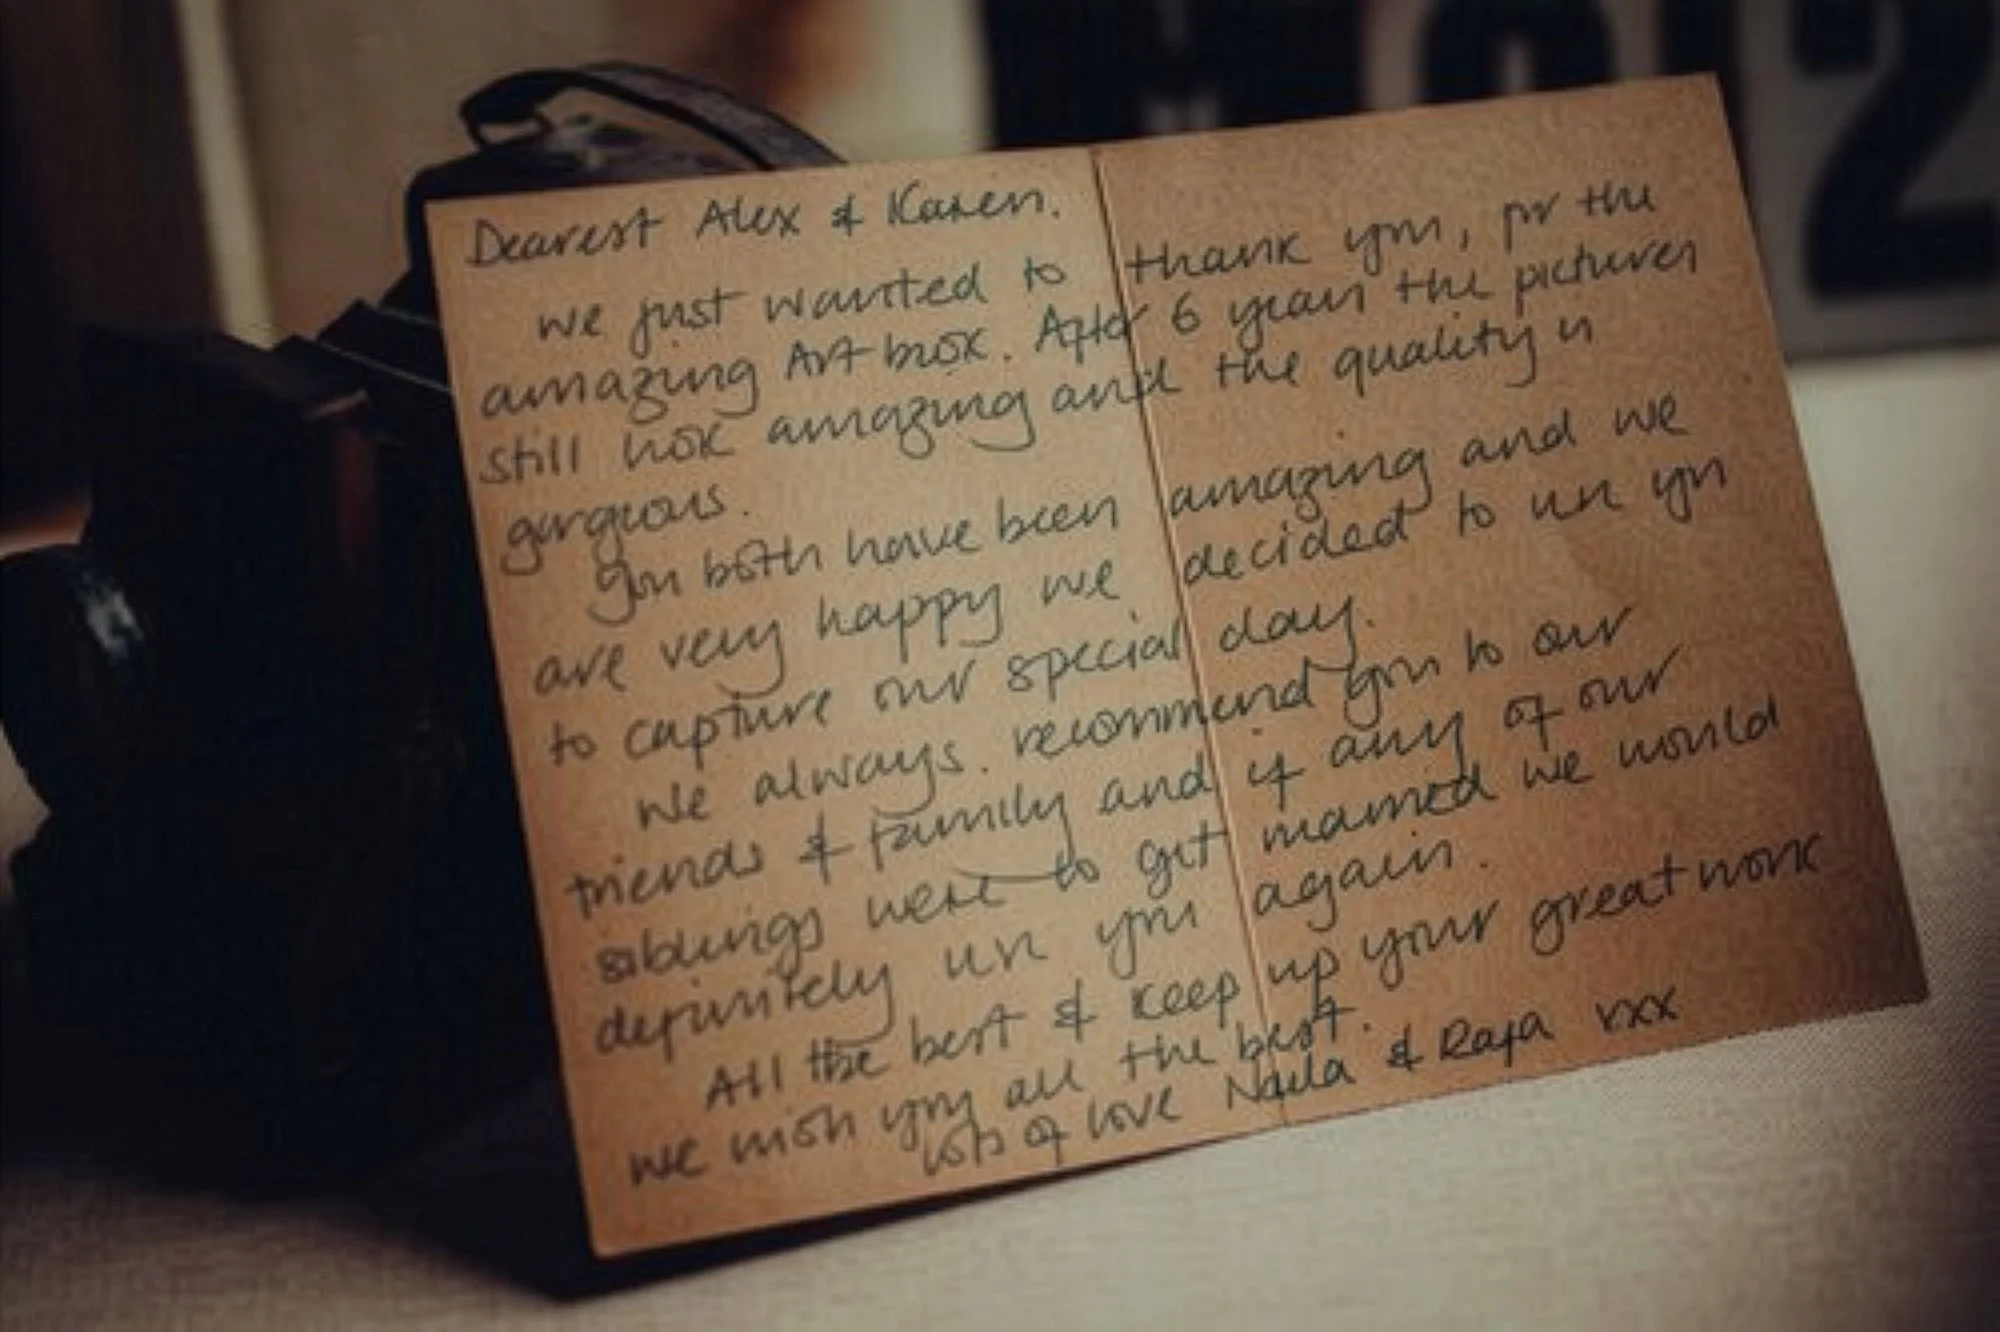 02
Dearest Alex & Karen.
we just wanted to thank you, for the
amazing Art book. After 6 years the pictures
still look amazing and the quality is
gorgeous.
you both have been amazing and we
are very happy we decided to use you
to capture our special day.
We always. recommend you to our
friends & family and if any of our
siblings were to get married we would
definitely use you again.
All the best & keep up your great work
we wish you all the best.
lots of love Naila & Raja xxx